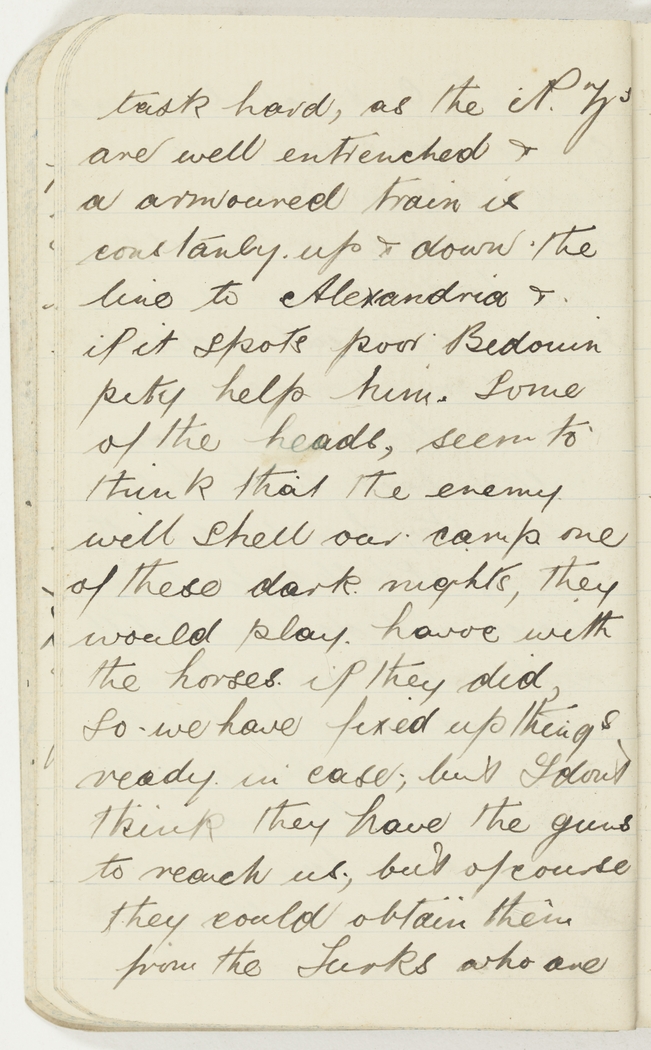 task hard, as the N. Z's
are well entrenched &
a armoured train is
constanly up & down the
line to Alexandria &
if it spots poor Bedouin
pity help him. Some
of the heads, seem to
think that the enemy
will shell our camp one
of these dark nights, they
would play havoc with
the horses if they did,
So we have fixed up things
ready in case; but I don't
think they have the guns
to reach us; but of course
they could obtain them
from the Turks who are